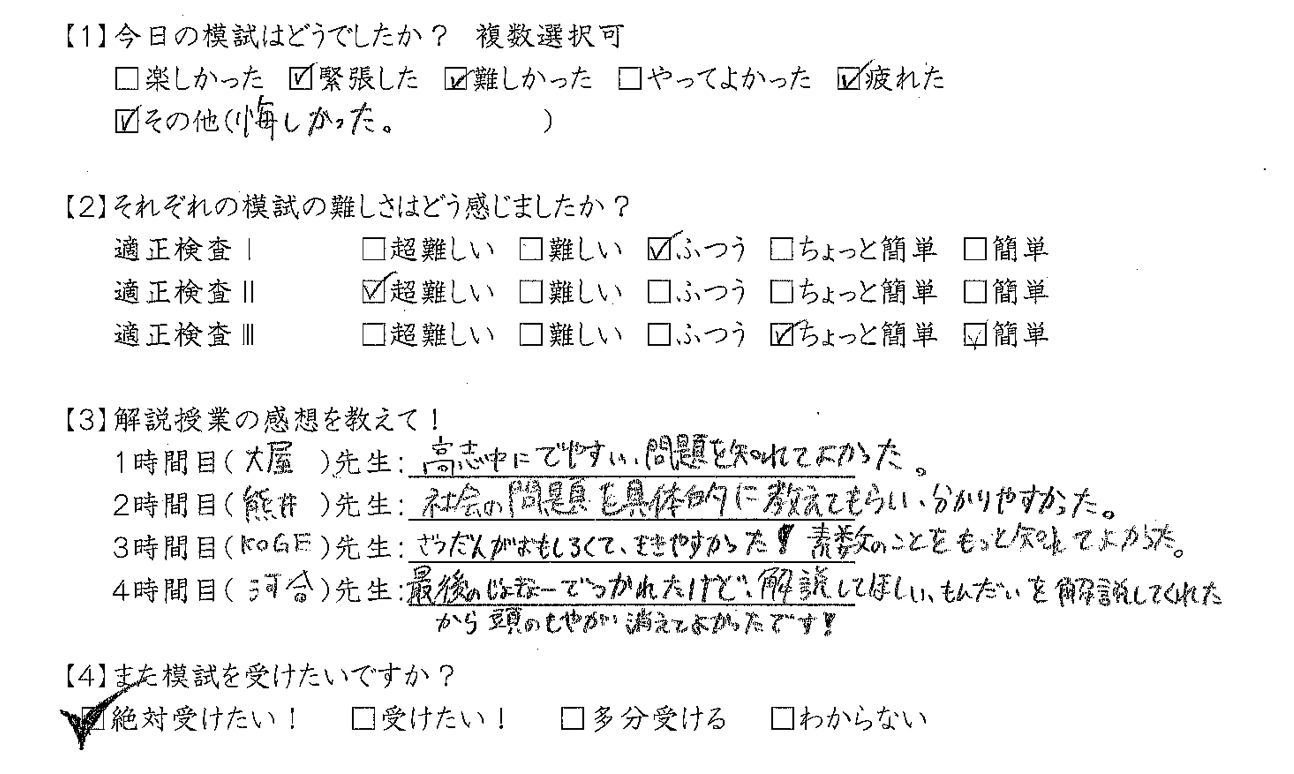 【1】今日の模試はどうでしたか？ 複数選択可
☐楽しかった ☑緊張した ☑難しかった ☐やってよかった ☑疲れた
☑その他(悔しかった。)
【2】それぞれの模試の難しさはどう感じましたか？
適正検査Ⅰ ☐超難しい ☐難しい ☑ふつう ☐ちょっと簡単 ☐簡単
適正検査Ⅱ ☑超難しい ☐難しい ☐ふつう ☐ちょっと簡単 ☐簡単
適正検査Ⅲ ☐超難しい ☐難しい ☐ふつう ☑ちょっと簡単 ☑簡単
【3】解説授業の感想を教えて！
1時間目(大屋)先生：高志中にでやすい、問題を知れてよかった。
2時間目(熊井)先生：社会の問題を具体的に教えてもらい、分かりやすかった。
3時間目(KOGE)先生：ざつだんがおもしろくて、ききやすかった！素数のことをもっと知れてよかった。
4時間目(河合)先生：最後のじゅぎょーでつかれたけど、解説してほしい、もんだいを解説してくれた
から頭のもやが消えてよかったです！
【4】また模試を受けたいですか？
☑絶対受けたい！ ☐受けたい！ ☐多分受ける ☐わからない